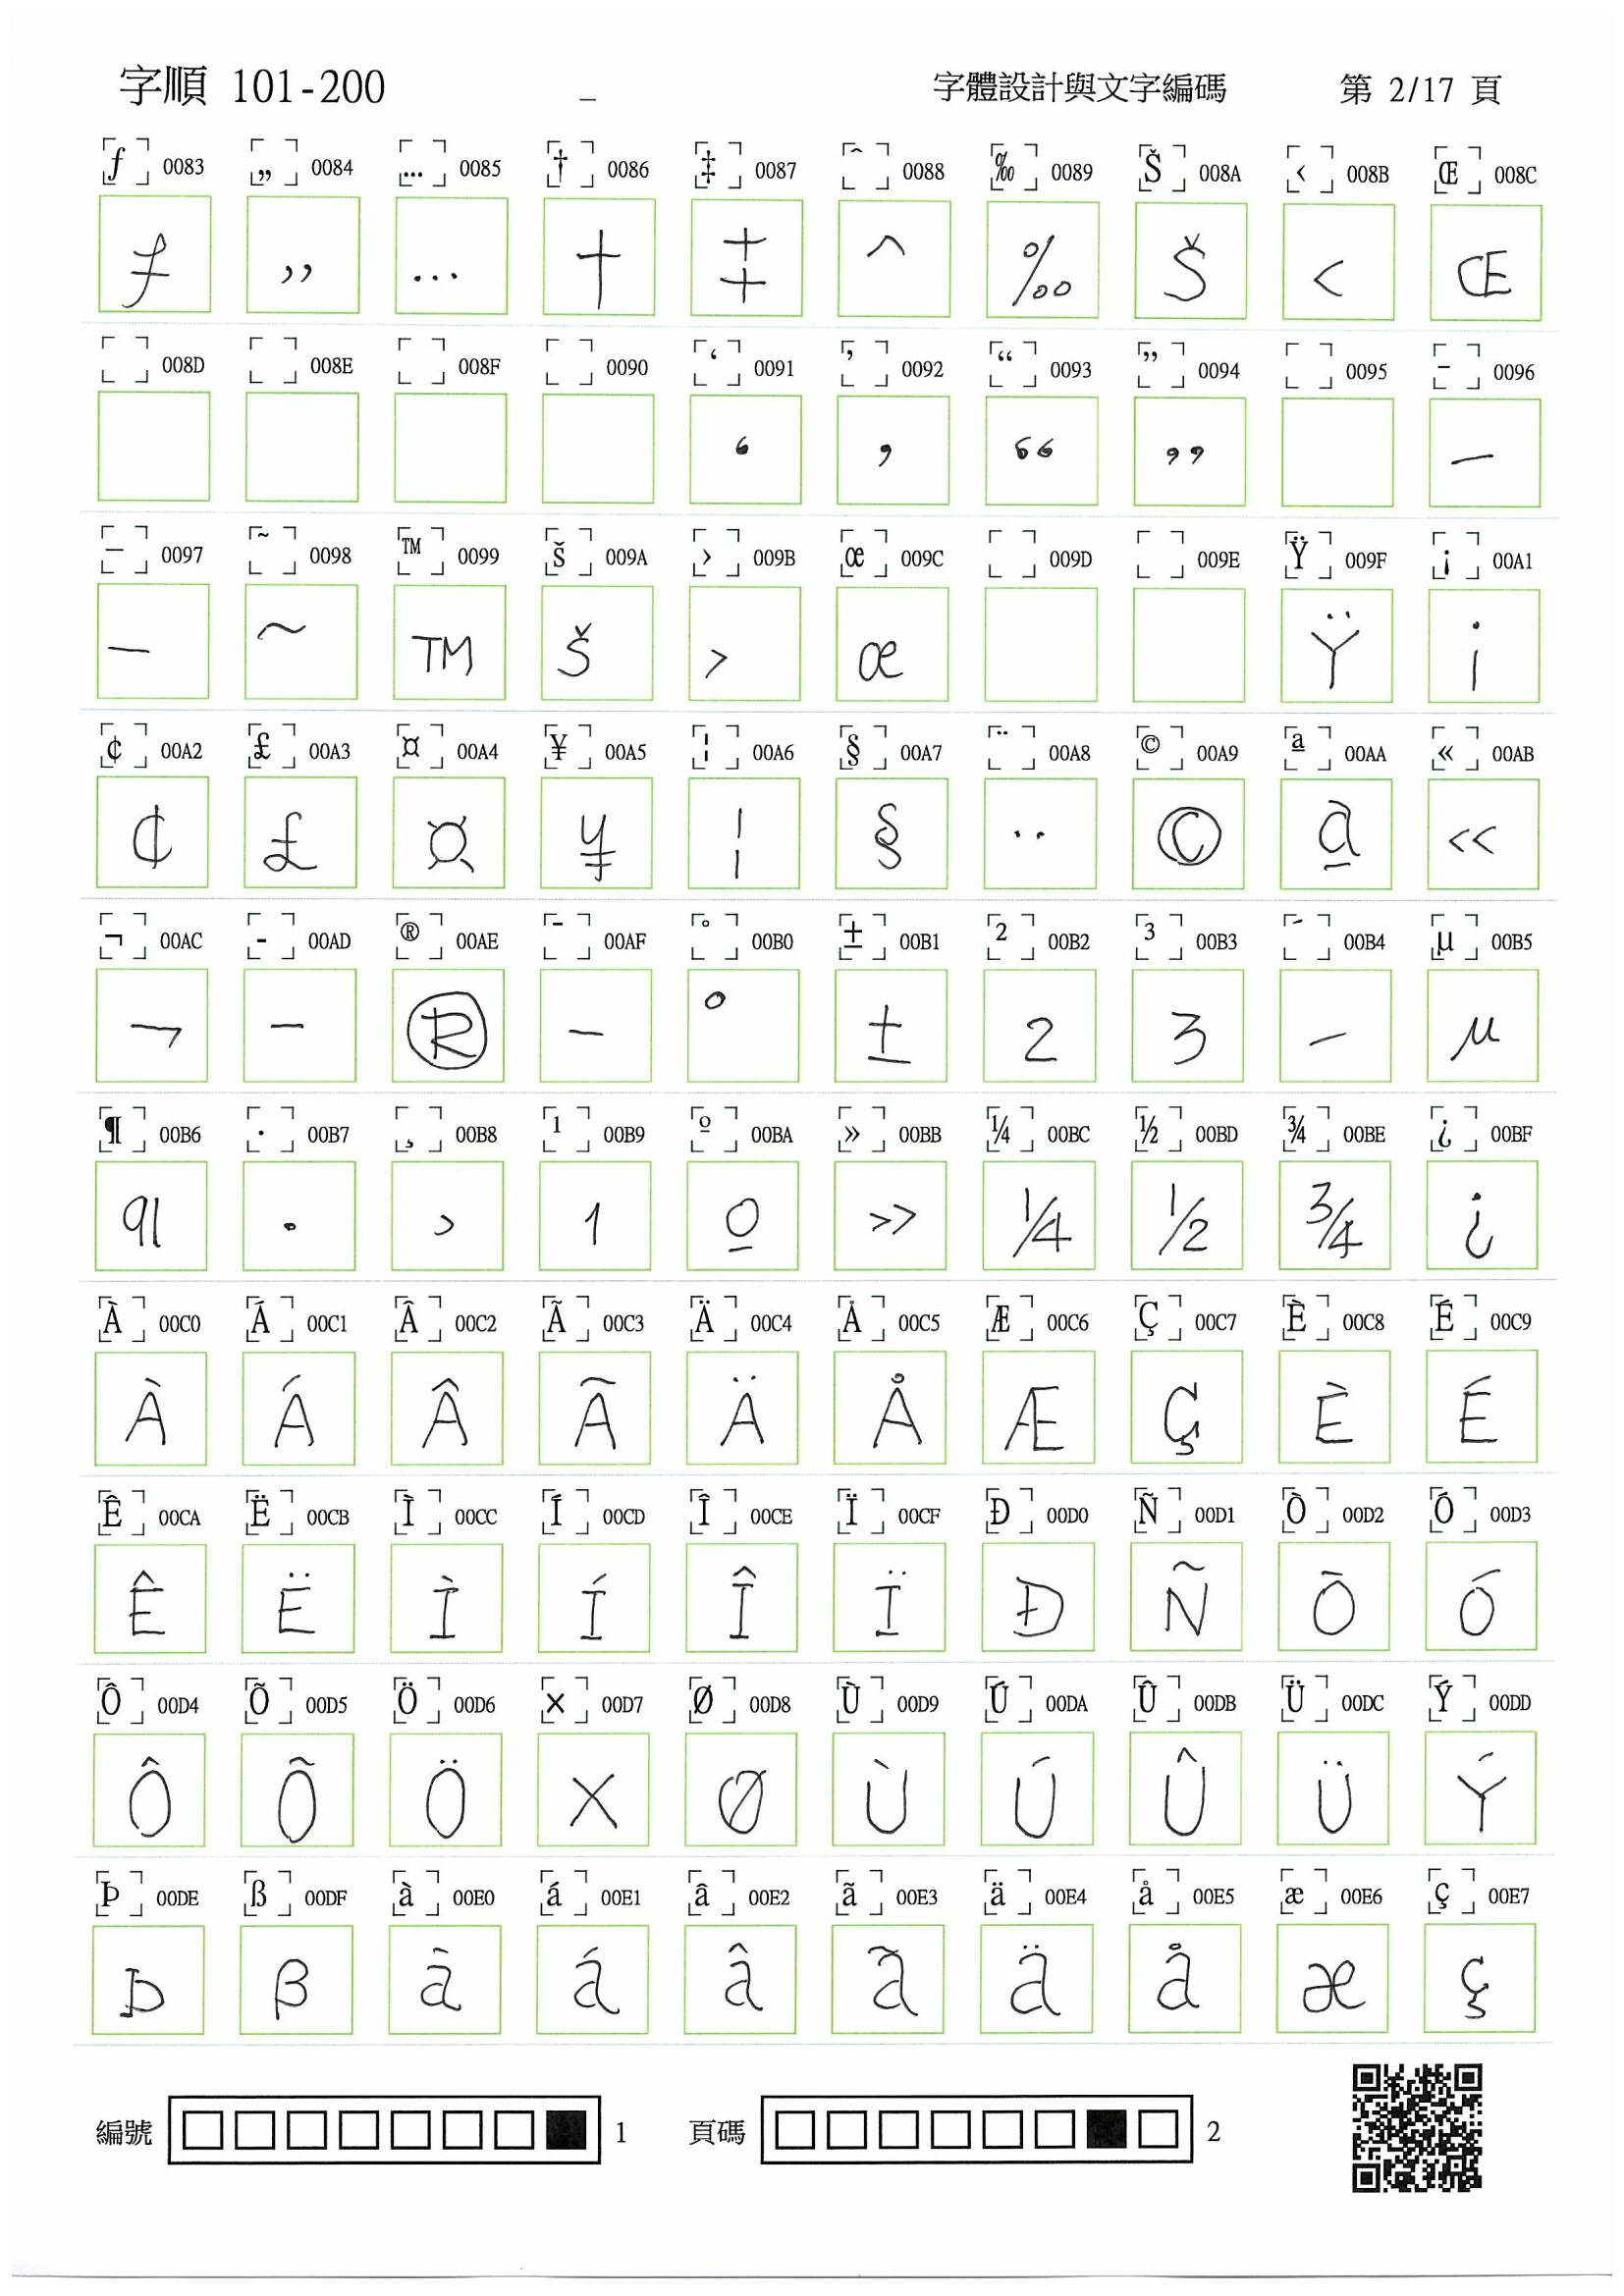 字順 101-200 _ 字體設計與文字編碼 第 2/17 頁
ƒ 0083 „ 0084 … 0085 † 0086 ‡ 0087 ˆ 0088 ‰ 0089 Š 008A ‹ 008B Œ 008C
ƒ ,, … † ‡ ^ ‰ Š < Œ
008D 008E 008F 0090 ‘ 0091 ’ 0092 “ 0093 ” 0094 0095 – 0096
‘ ’ “ ” –
— 0097 ˜ 0098 ™ 0099 š 009A › 009B œ 009C 009D 009E Ÿ 009F ¡ 00A1
— ~ TM š > œ Ÿ ¡
¢ 00A2 £ 00A3 ¤ 00A4 ¥ 00A5 ¦ 00A6 § 00A7 ¨ 00A8 © 00A9 ª 00AA « 00AB
¢ £ ¤ ¥ ¦ § ¨ © ª «
¬ 00AC - 00AD ® 00AE ¯ 00AF ° 00B0 ± 00B1 ² 00B2 ³ 00B3 ´ 00B4 µ 00B5
¬ - ® – ° ± 2 3 ´ µ
¶ 00B6 · 00B7 ¸ 00B8 ¹ 00B9 º 00BA » 00BB ¼ 00BC ½ 00BD ¾ 00BE ¿ 00BF
¶ · ¸ 1 º » ¼ ½ ¾ ¿
À 00C0 Á 00C1 Â 00C2 Ã 00C3 Ä 00C4 Å 00C5 Æ 00C6 Ç 00C7 È 00C8 É 00C9
À Á Â Ã Ä Å Æ Ç È É
Ê 00CA Ë 00CB Ì 00CC Í 00CD Î 00CE Ï 00CF Ð 00D0 Ñ 00D1 Ò 00D2 Ó 00D3
Ê Ë Ì Í Î Ï Ð Ñ Ò Ó
Ô 00D4 Õ 00D5 Ö 00D6 × 00D7 Ø 00D8 Ù 00D9 Ú 00DA Û 00DB Ü 00DC Ý 00DD
Ô Õ Ö × Ø Ù Ú Û Ü Ý
Þ 00DE ß 00DF à 00E0 á 00E1 â 00E2 ã 00E3 ä 00E4 å 00E5 æ 00E6 ç 00E7
Þ ß à á â ã ä å æ ç
編號 1 頁碼 2